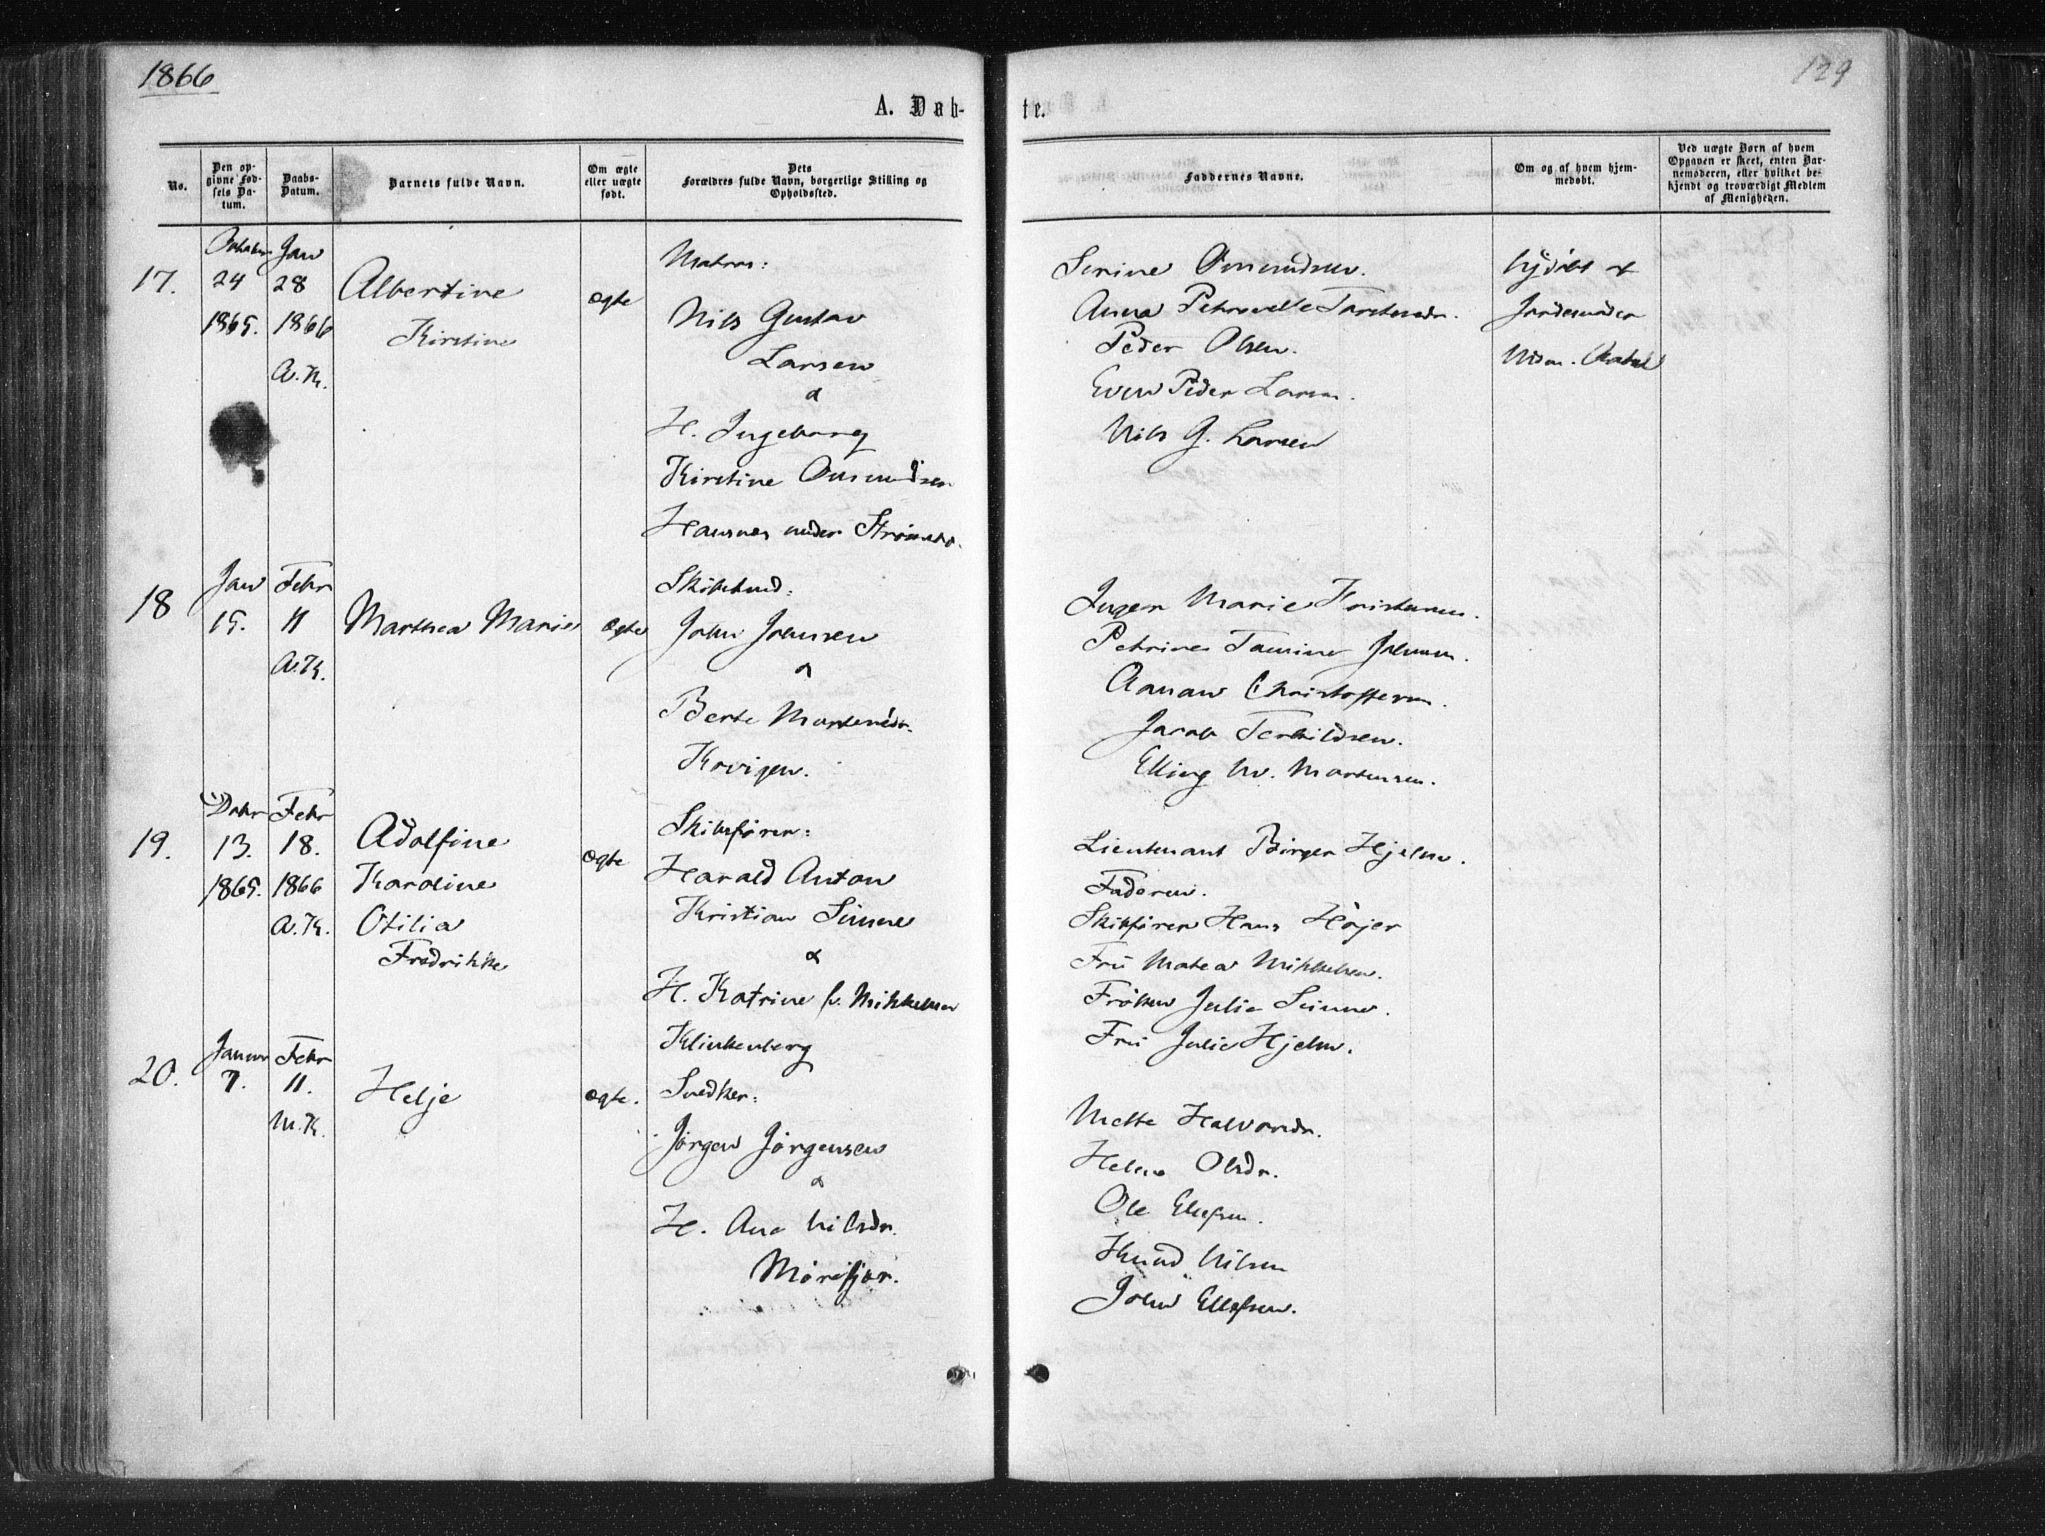 1866
129
A. Døb-
te.
No.
Den op-
givne Fød-
sels Da-
tum.
Daabs-
Datum.
Barnets fulde Navn.
Om ægte
eller uægte
født.
Dets
Forældres fulde Navn, borgerlige Stilling og
Opholdssted.
Faddernes Navne.
Om og af hvem hjem-
medøbt.
Ved uægte Børn af hvem
Opgaven er skeet, enten Bar-
nemoderen, eller hvilket be-
kjendt og troværdigt Medlem
af Menigheden.
17.
24
1865.
Jan
28
1866
A.K.
Albertine
Kirstine
ægte
Matros:
Nils Gustav
Larsen
&
H. Ingeborg
Kirstine Omundsen
under
Serine Omundsen.
Anna
Peder Olsen.
Even Peder Larsen.
Nils G. Larsen
hjdøbt
18
Jan
15.
Febr
11
A.K.
Marthea Marie
ægte
John Johnsen
&
Berte Mortensdr.
Krvigen.
Inger Marie
Petrine Tomine Johnsen.
Christoffersen.
Jacob Terkildsen.
Elling M. Mortensen.
19.
Debr
13.
1865.
Febr
18.
1866
A.K.
Adolfine
Karoline
Otilia
Fredrikke
ægte
Skibsfører:
Harald Anton
Kristian Sinne
&
H. Katrine f. Mikkelsen
Klinkenberg
Lieutenant Birger Hjelm.
Faderen.
Skibsfører Hans Højer
Fru Matea Mikkelsen.
Frøken Julie Sinne.
Fru Julie Hjelm.
20.
Januar
7.
Febr
11.
M.K.
Helje
ægte.
Snedker:
Jørgen Jørgensen
&
H. Ane Nilsdr.
Mørefjær.
Mette Halvorsdr.
Helene Olsdr.
Ole Ellefsen.
Knud Nilsen
John Ellefsen.